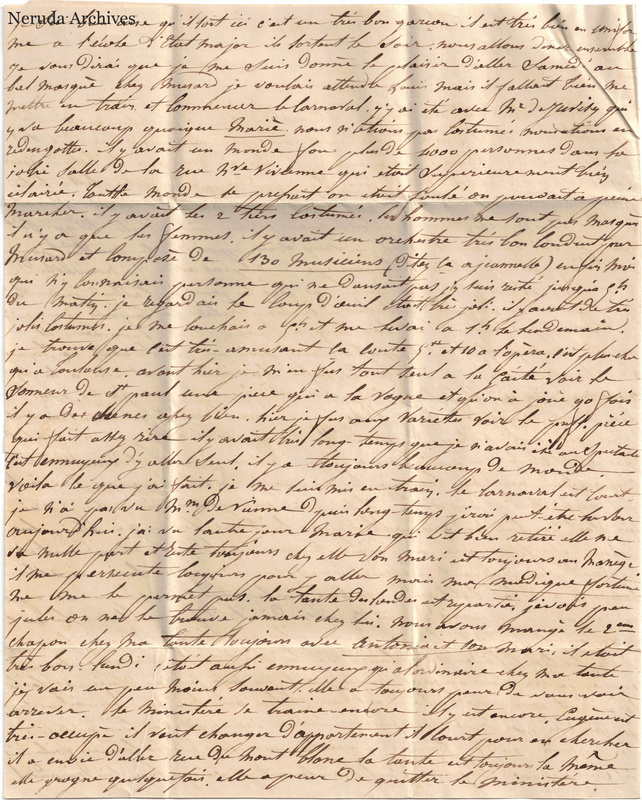 Neruda Archives,
qu'il sort ici c'est un très bon garçon il est très bien en uniforme
me a l'école d'Etat major ils sortent le soir. nous allons diner ensemble
je vous dirai que je me suis donné le plaisir d'aller Samedi au
bal masqué chez Musard je voulais attendre mais il fallait bien me
mettre en train et commencer le carnaval. j'y ai été avec Mr de qui
y va beaucoup quoique Marié. nous n'étions pas costumés nous étions en
redingottes. il y avait un monde fou plus de 4000 personnes dans la
jolie salle de la rue Nve Vivienne qui était superieurement bien
éclairée. tout le monde se pressait on était foulé on pouvait a peine
marcher. il y avait les 2 tiers costumés. les hommes ne sont pas masqués
il n'y a que les femmes. il y avait un orchestre très bon conduit par
Musard et composé de 130 musiciens (dites ça a jeannette) enfin moi
qui n'y connaissais personne qui ne dansait pas j'y suis resté jusques 5h
du matin. je regardais le coup d'oeil était très joli. il y avait de très
jolis costumes. je me couchais a et me levai a 1h le lendemain.
je trouve que c'est très-amusant ça coute 5 et 10 a l'opéra, c'est plus cher
qu'a toulouse. avant hier je m'en fus tout seul a la Gaité voir le
Sonneur de St paul une pièce qui a la vogue et qu'on a joué 90 fois
il y a des scènes assez bien. hier je fus aux Variétés voir le puff, pièce
qui fait assez rire il y avait très long-temps que je n'avais été au spectacle
c'est ennuyeux d'y aller seul. il y a toujours beaucoup de monde
voila ce que j'ai fait. je me suis mis en train. le carnaval est court
je n'ai pas vu Mme de Vienne depuis long-temps j'irai peut-être
aujourd'hui. j'ai vu l'autre jour Marie qui est bien elle ne
va nulle part et reste toujours chez elle son mari est toujours au Manège
il me persecute toujours pour y aller mais ma modique fortune
ne me le permet pas. la tante deslandes est repartie, je vois peu
jules on ne le trouve jamais chez lui. nous avons mangé le 2eme
chapon chez ma tante toujours avec Antonia et son mari, il était
très bon. lundi c'était aussi ennuyeux qu'a l'ordinaire chez ma tante
j'y vais un peu moins souvent. elle a toujours peur de vous voir
arriver. le Ministère se traine encore il y est encore. Eugène est
très-occupé il veut changer d'appartement il court pour en chercher
il a envie d'aller rue du Mont blanc la tante est toujours la même
elle grogne quelquefois. elle a peur de quitter le ministère.